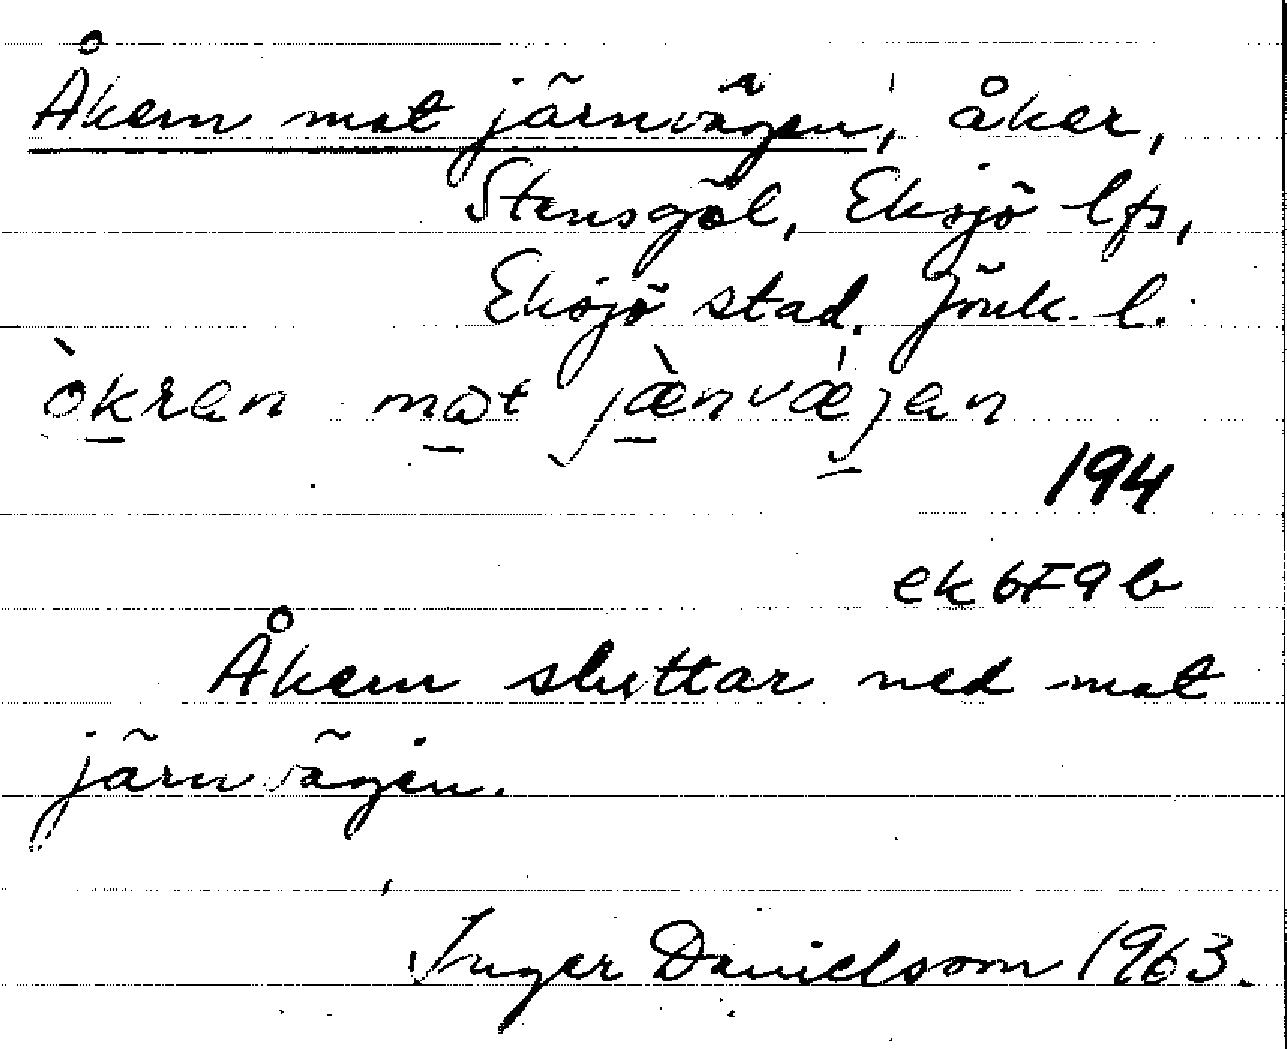 Åkern mot järnvägen, åker,
Stensgöl, Eksjö lfs,
Eksjö stad. Jönk. l.
òkran mot jæ̀nvæ̀jan
194
ek 6F9b
Åkern sluttar ned mot
järnvägen.
Inger Danielsson 1963.